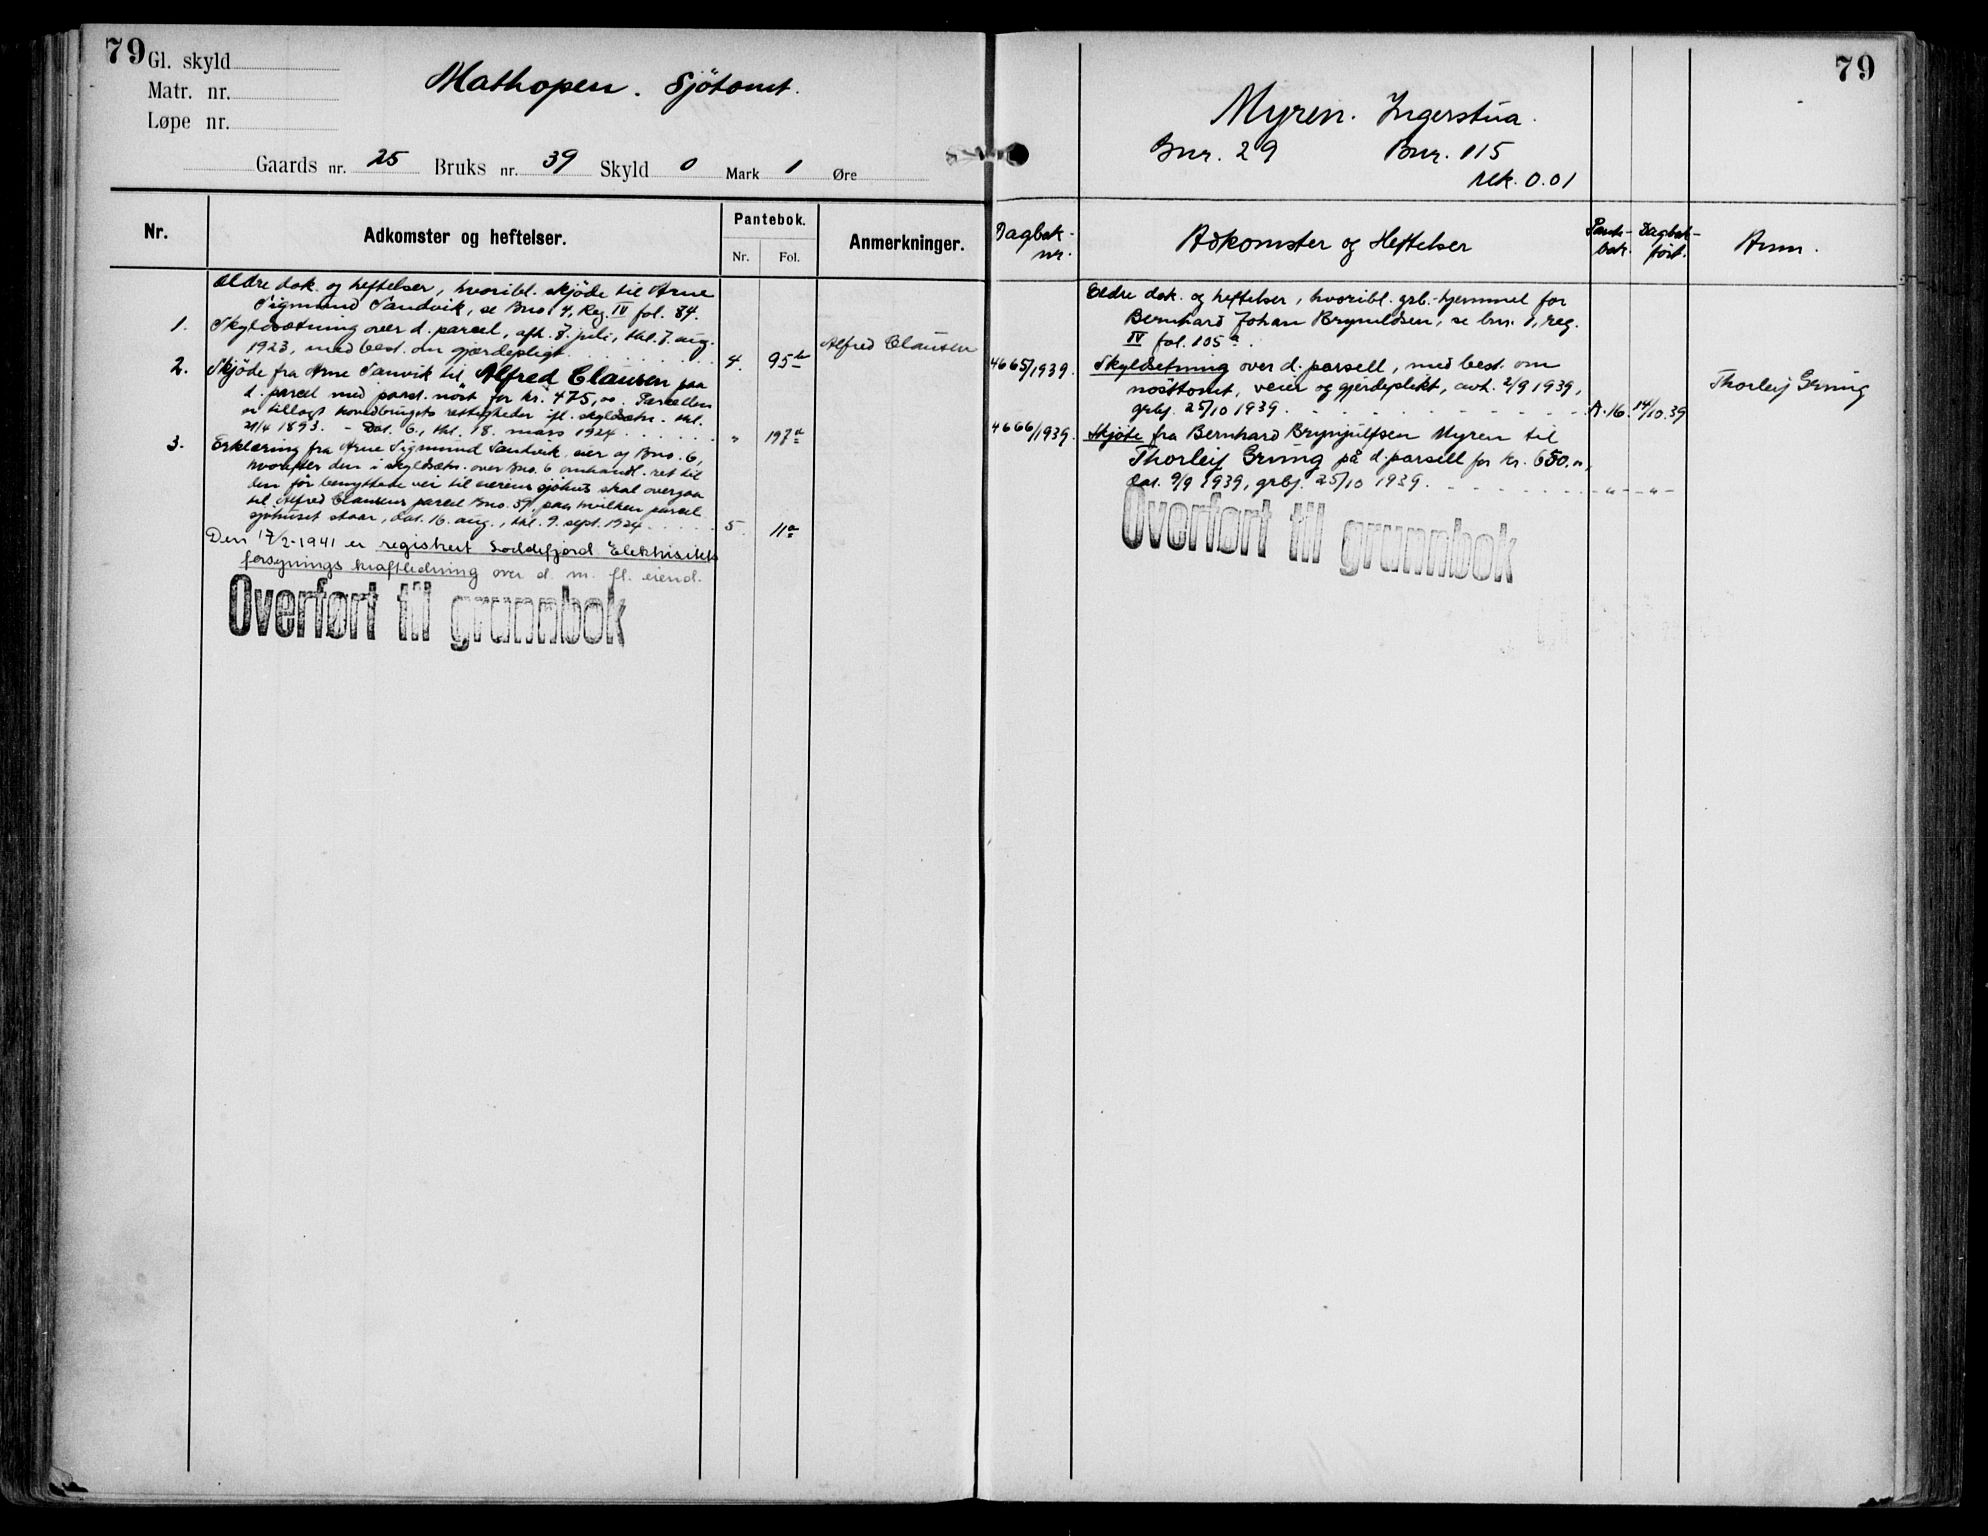 79
Gl. skyld
Matr. nr.
Løpe nr.
Mathopen. Sjötomt.
Gaards nr. 25 Bruks nr. 39 Skyld 0 Mark 1 Øre
Nr.
Adkomster og heftelser.
Pantebok.
Nr. Fol.
Anmerkninger.
Ældre dok. og heftelser, hvoribl. skjöde til Arne
Sigmund Sandvik, se Bno 4, Reg. IV fol. 84.
1. Skyldsætning over d. parcel, afh. 7. juli, thl. 7. aug.
1923, med best. om gjærdepligt. 4. 95 b
Alfred Clausen
2. Skjöde fra Arne Sanvik til Alfred Clausen paa
d. parcel med paast. nöst for kr. 475,00. Parcellen
er tillagt hovedbrugets rettigheder ifl. skyldsætn. thl.
21/4 1893. - Dat. 6., thl. 18. mars 1924 " 197 a
3. Erklæring fra Arne Sigmund Sandvik, eier af Bno. 6,
hvorefter den i skyldsætn. over Bno. 6 omhandl. ret til
den för benyttede vei til eierens sjöhus skal overgaa
til Alfred Clausens parcel Bno. 39, paa hvilken parcel
sjöhuset staar, dat. 16. aug., thl. 9. sept. 1924 5 11 a
Den 17/2-1941 er registrert Loddefjord Elektrisitets
forsynings kraftledning over d. m. fl. eiend.
Overført til grunnbok
79
Myren. Ingerstua.
Gnr. 29 Bnr. 115
Mk. 0.01
Dagbok-
nr.
Adkomster og Heftelser
Pante-
bok.
Dagbok-
ført.
Anm.
Eldre dok. og heftelser, hvoribl. grb.-hjemmel for
Bernhard Johan Brynildsen, se bnr. 1, reg.
IV fol. 105 a.
4665/1939. Skyldsetning over d. parsell, med best. om
nösttomt, veier og gjerdeplikt, avh. 2/9 1939,
grbf. 25/10 1939 A. 16. 14/10.39
Thorleif Grung
4666/1939. Skjöte fra Bernhard Brynjulfsen Myren til
Thorleif Grung på d. parsell for kr. 650.,
dat. 9/9 1939, grbf. 25/10 1939. - " - - " -
Overført til grunnbok